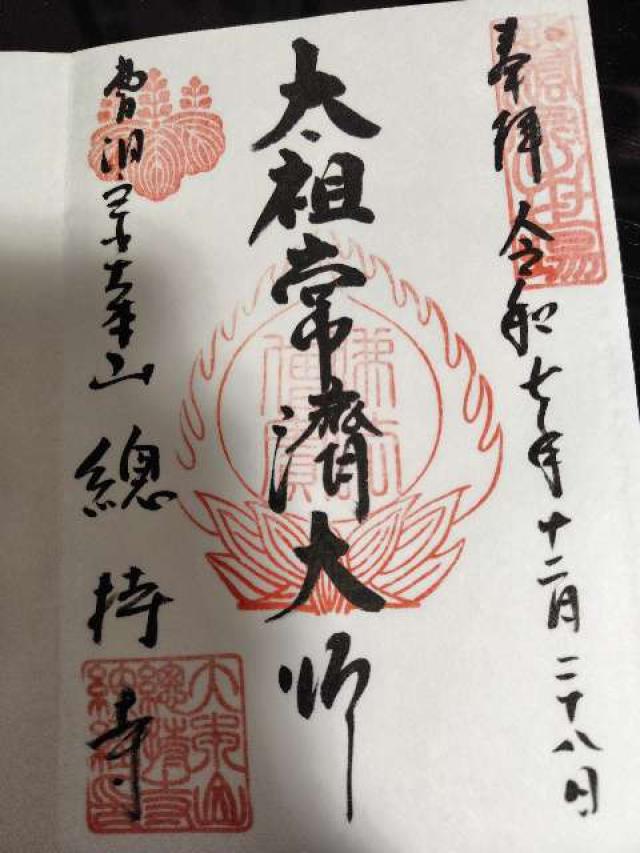 奉拝 令和七年十二月二十八日
太祖常濟大師
曹洞宗大本山 總持寺
佛法僧寳
大本山總持寺納経印